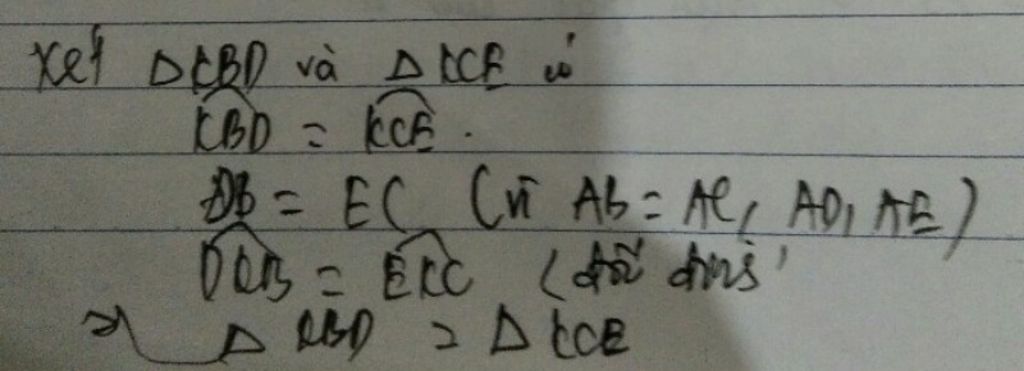 Xét △KBD và △KCE có
KBD = KCE.
DB = EC (vì AB = AC, AD, AE)
DKB = EKC (đối đỉnh)
=> △KBD = △KCE